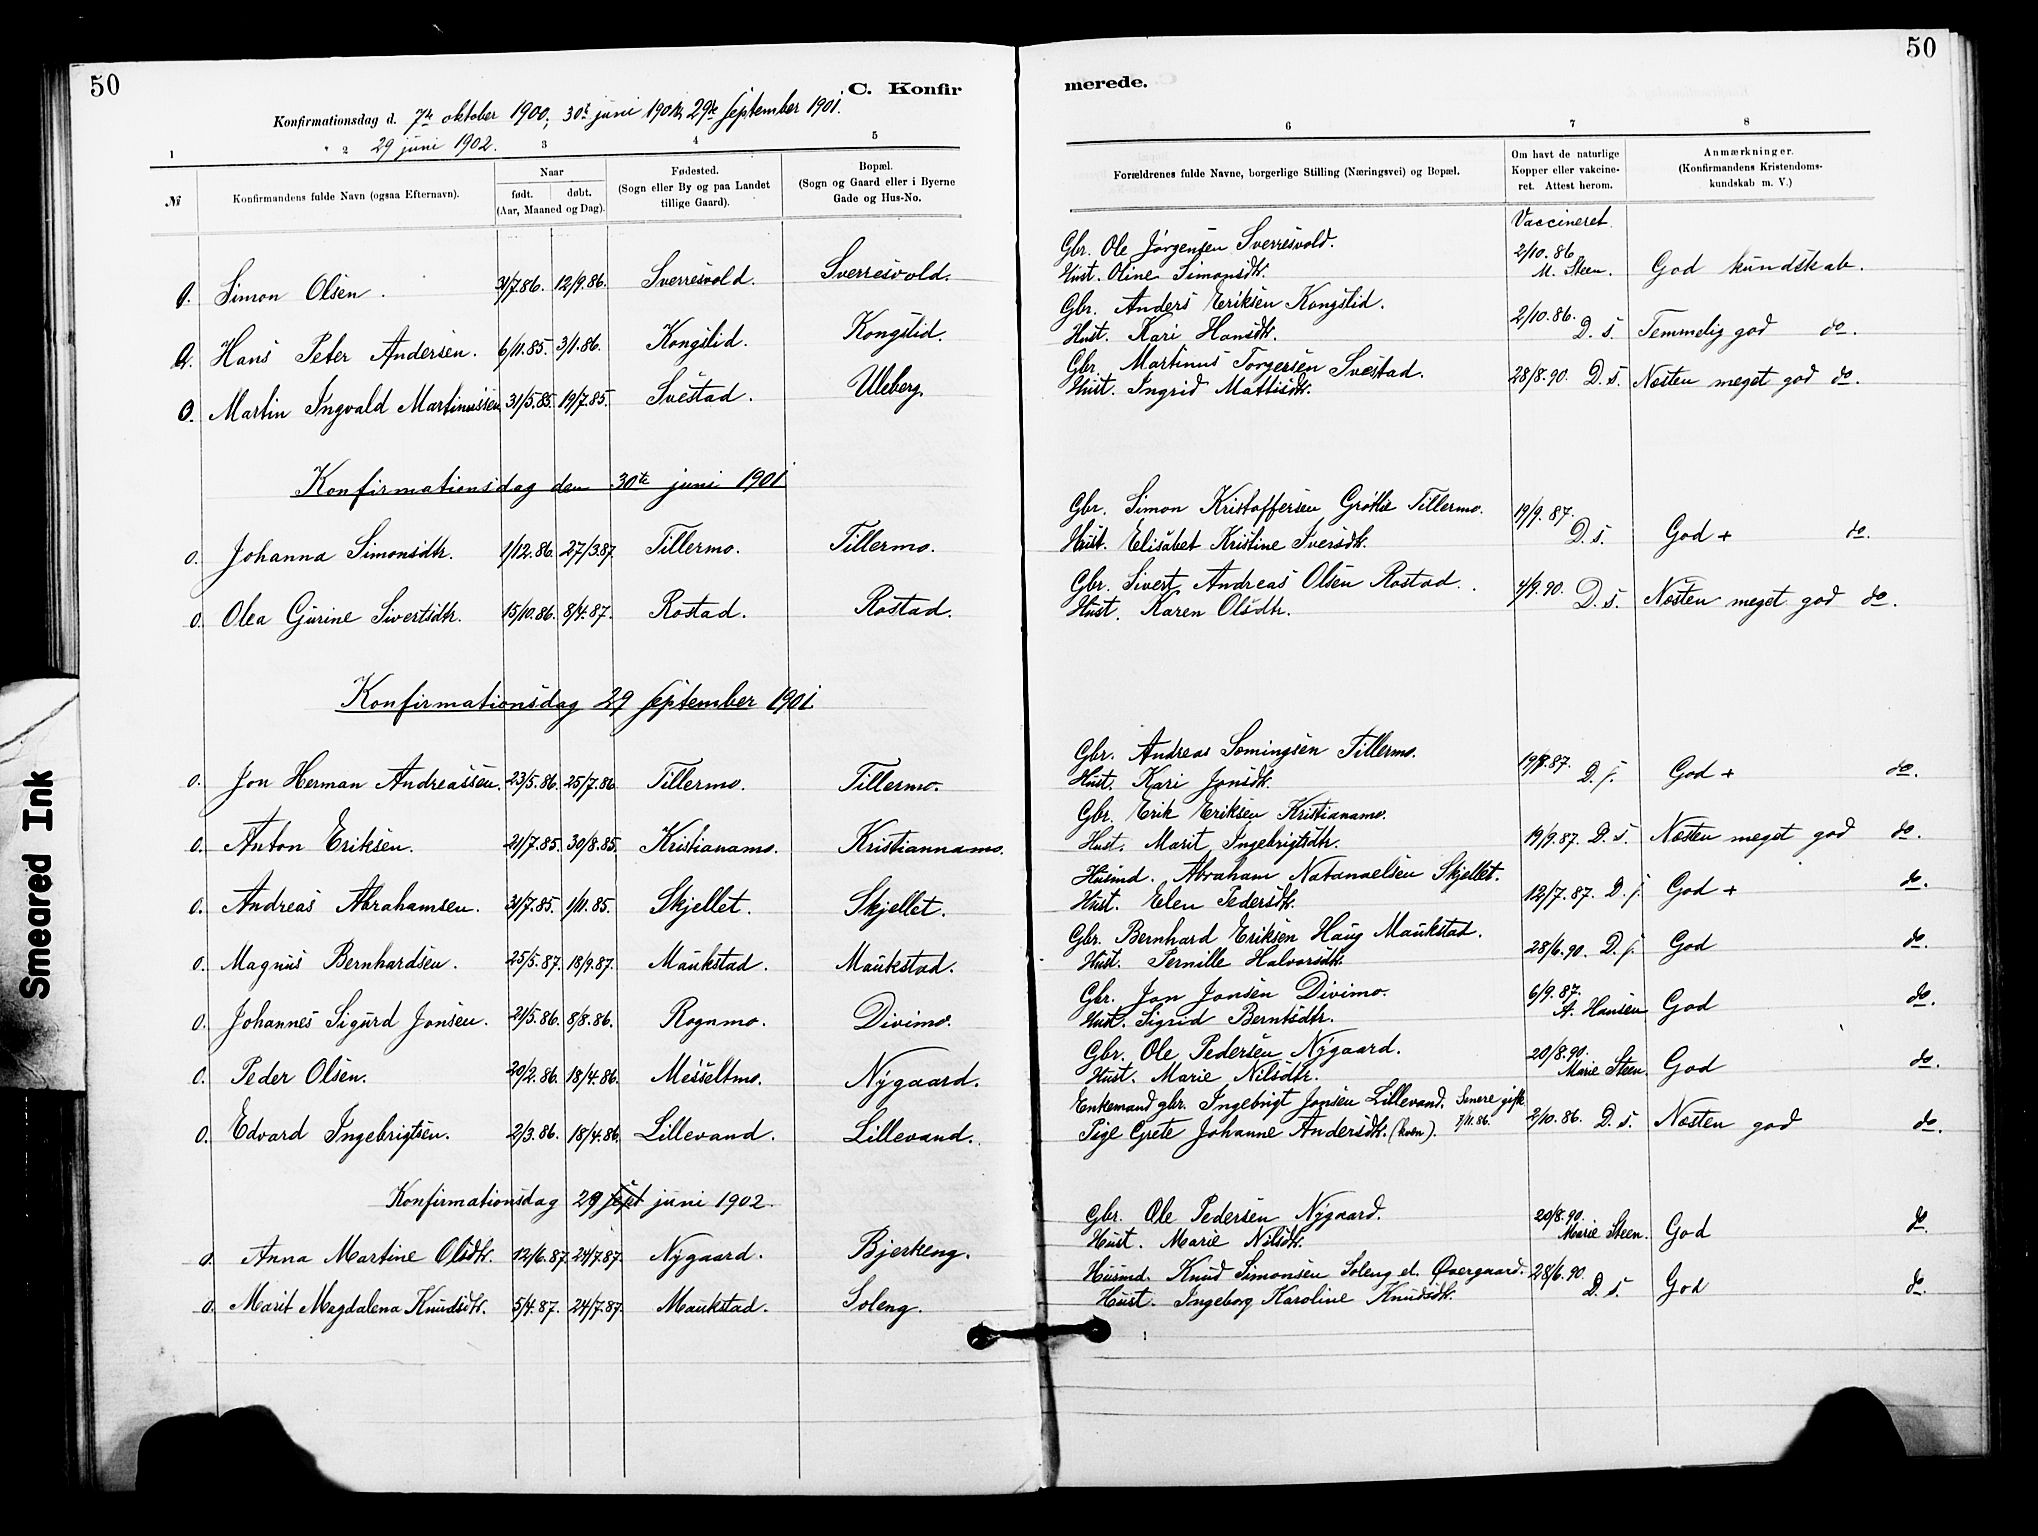 50
50
C. Konfir
merede.
Konfirmationsdag d. 7de oktober 1900, 30te juni 1901, 29de September 1901.
" " 29 juni 1902.
1 2 3 4 5 6 7 8
№
Konfirmandens fulde Navn (ogsaa Efternavn).
Naar
født. døbt.
(Aar, Maaned og Dag).
Fødested.
(Sogn eller By og paa Landet
tillige Gaard).
Bopæl.
(Sogn og Gaard eller i Byerne
Gade og Hus-No.
Forældrenes fulde Navne, borgerlige Stilling (Næringsvei) og Bopæl.
Om havt de naturlige
Kopper eller vakcine-
ret. Attest herom.
Anmærkninger.
(Konfirmandens Kristendoms-
kundskab m. V.)
Vaccineret.
Gbr. Ole Jørgensen Sverresvold.
0. Simon Olsen. 31/7 86. 12/9. 86. Sverresvold. Sverresvold. Hust. Oline Simonsdtr. 2/10. 86. M. Steen. God kundskab.
Gbr. Anders Eriksen Kongslid.
0. Hans Peter Andersen. 6/11. 85. 3/1. 86. Kongslid. Kongslid. Hust. Kari Hansdtr. 2/10. 86. D. s. Temmelig god do.
Gbr. Martinus Torgersen Svestad.
0. Martin Ingvald Martinussen 31/5. 85. 19/7. 85. Svestad. Uleberg. Hust. Ingrid Mattisdtr. 28/8. 90. D. s. Næsten meget god do.
Konfirmationsdag den 30te juni 1901
Gbr. Simon Kristoffersen Tillermo.
0. Johanna Simonsdtr. 1/12. 86. 27/3 87. Tillermo. Tillermo. Hust. Elisabet Kristine Iversdtr. 19/9. 87. D. s. God + do.
Gbr. Sivert Andreas Olsen Rostad.
0. Olea Gurine Sivertsdtr. 15/10. 86. 8/4. 87. Rostad. Rostad. Hust. Karen Olsdtr. 4/9. 90. D. s. Næsten meget god do.
Konfirmationsdag 29 September 1901
Gbr. Andreas Tillermo.
0. Jon Herman Andreassen. 23/5. 86. 25/7. 86 Tillermo. Tillermo. Hust. Kari Jonsdtr. 19/9. 87. D. s. God + do.
Gbr. Erik Eriksen Kristianamo.
0. Anton Eriksen. 21/7. 85. 30/8. 85. Kristianamo. Kristiannamo. Hust. Marit Ingebrigtsdtr. 19/9. 87. D. s. Næsten meget god do.
Husmd. Abraham Natanaelsen Skjellet.
0. Andreas Abrahamsen. 31/7. 85. 1/11. 85. Skjellet. Skjellet. Hust. Elen Pedersdtr. 12/7. 87. D. s. God + do.
Gbr. Bernhard Eriksen Haug Maukstad.
0. Magnus Bernhardsen. 25/5. 87. 18/9. 87. Maukstad. Maukstad. Hust. Pernille Halvorsdtr. 28/6. 90. D. s. God do.
Gbr. Jon Jonsen Divimo.
0. Johannes Sigurd Jonsen. 21/5. 86. 8/8. 86. Rognmo. Divimo. Hust. Sigrid Berntsdtr. 6/9. 87. A. Hansen God do.
Gbr. Ole Pedersen Nygaard.
0. Peder Olsen. 20/2. 86. 18/4. 86. Messeltmo. Nygaard. Hust. Marie Nilsdtr. 20/8. 90. Marie Steen. God do.
Enkemand gbr. Ingebrigt Jonsen Lillevand. Senere gift 7/11. 86.
0. Edvard Ingebrigtsen. 2/3. 86. 18/4. 86. Lillevand. Lillevand. Pige Grete Johanne Andersdtr. (kvæn). 2/10. 86. D. s. Næsten god do.
Konfirmationsdag 29 sept juni 1902.
Gbr. Ole Pedersen Nygaard.
0. Anna Martine Olsdtr. 12/6. 87. 24/7. 87. Nygaard. Bjerkeng. Hust. Marie Nilsdtr. 20/8. 90. Marie Steen. God do
Husmd. Knud Simonsen Soleng el. Øvergaard.
0. Marit Magdalena Knudsdtr. 5/4. 87. 24/7. 87. Maukstad. Soleng. Hust. Ingeborg Karoline Knudsdtr. 28/6. 90. D. s. God do.
Smeared Ink